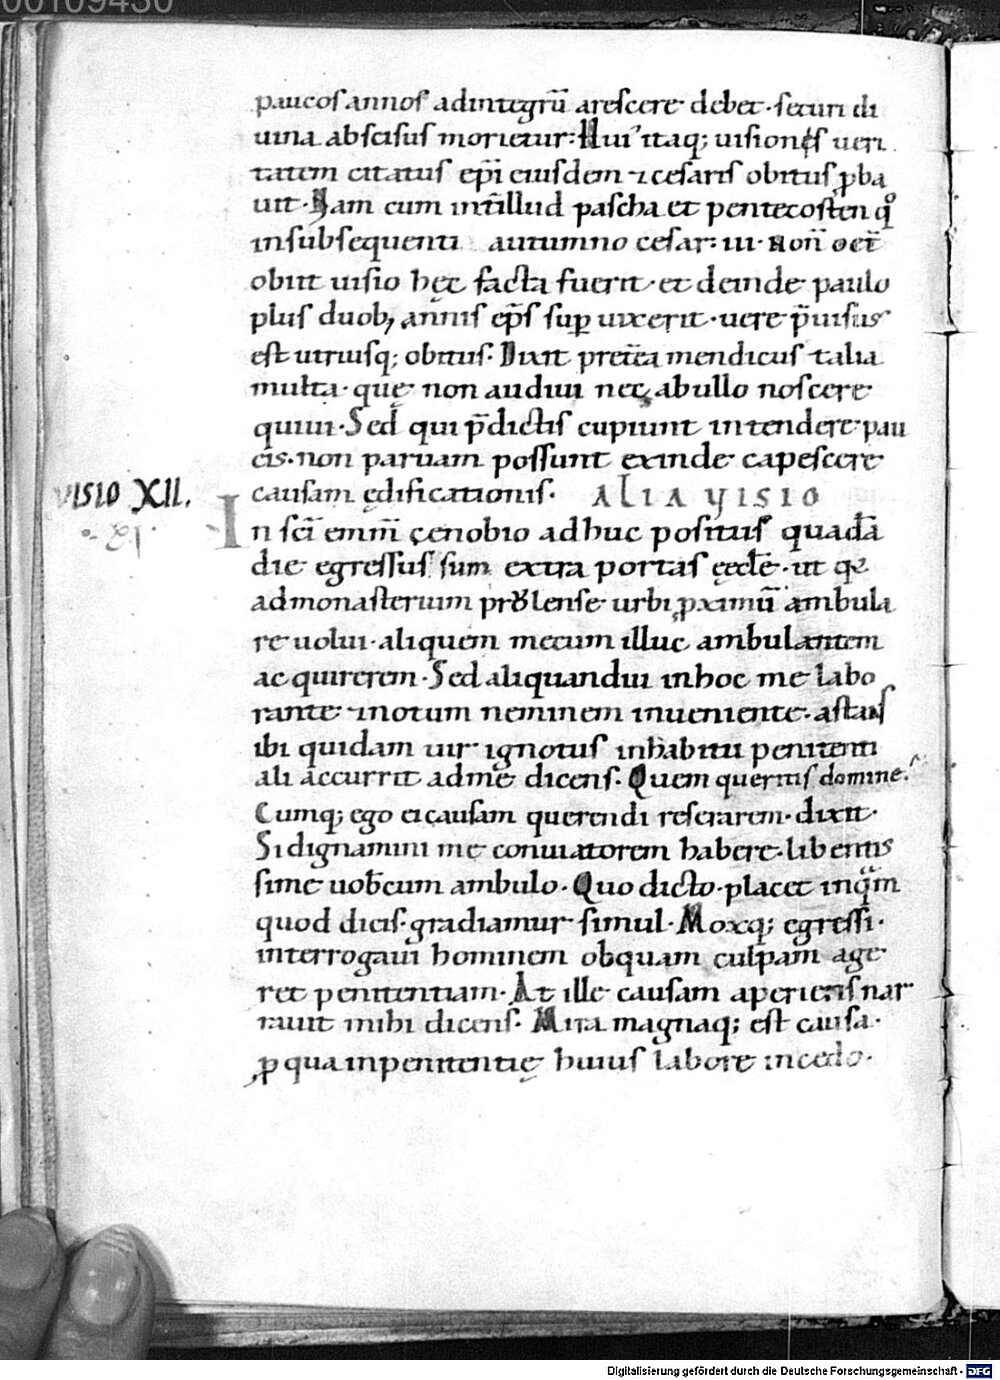 00109430
paucos annos adintegrū arescere debet · securi di
uina abscisus morietur: Hui᾽ itaq; uisionis ueri
tatem citatus ep̄i eiusdem ⁊ cesaris obitus ꝓba
uit · Nam cum int̄ illud pascha et pentecosten qͦ
insubsequenti autumno cesar: iii · non̄ oct̄
obiit uisio hęc facta fuerit · et deinde paulo
plus duob; annis ep̄s sup uixerit · uere p̄uisus
est utriusq; obitus: Dixit preter̄ea mendicus talia
multa · quę non audiui nec abullo noscere
quiui · Sed qui p̄dictis cupiunt intendere pau
cis · non paruam possunt exinde capescere
causam ędificationis · ALIA VISIO
VISIO XII.
In sc̄i emm̄i cenobio adhuc positus quadā
die egressus sum extra portas ęccl̄e · ut qͣ
admonasterium prulense urbi ꝓximū ambula
re uolui · aliquem mecum illuc ambulantem
ac quirerem · Sed aliquandiu inhoc me labo
rante ⁊ notum neminem inueniente · astans
ibi quidam uir ignotus inhabitu penitenti
ali accurrit adme dicens · Quem queritis domine ·
Cumq; ego ei causam querendi reserarem · dixit ·
Si dignamini me conuiatorem habere · libentis
sime uob̄cum ambulo · Quo dicto · placet inqͣm
quod dicis · gradiamur simul · Moxq; egressi ·
interrogaui hominem obquam culpam age
ret penitentiam · At ille causam aperiens nar
rauit mihi dicens · Mira magnaq; est causa ·
ꝓ qua inpenitentię huius labore incedo ·
Digitalisierung gefördert durch die Deutsche Forschungsgemeinschaft - DFG